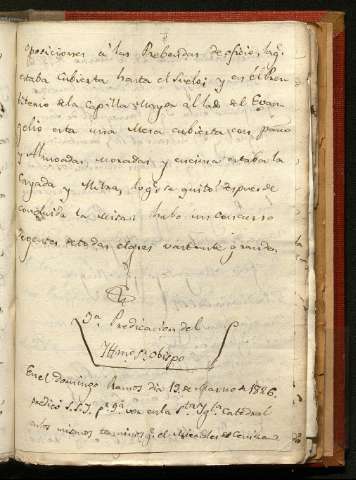 oposiciones á las Prebendas de oficio, la q.e
estaba Cubierta hasta el Suelo; y en el Pres-
biterio de la Capilla mayor al lado del Evan-
gelio esta una Mesa cubierta con paño
y Almoadas moradas, y encima estaba la
Cayada y Mitra, lo q.e se quitó despues de
concluida la Missa: hubo un concurso
de gentes de todas clases bastante grande.
3.a Predicacion del
Yltmo. S.r Obispo
En el domingo Ramos dia 19 de Marzo de 1826
predicó S.S.Y. 2.a vez en la S.ta Ygl.a Catedral
en los mismos terminos q.e el Miercoles de Ceniza